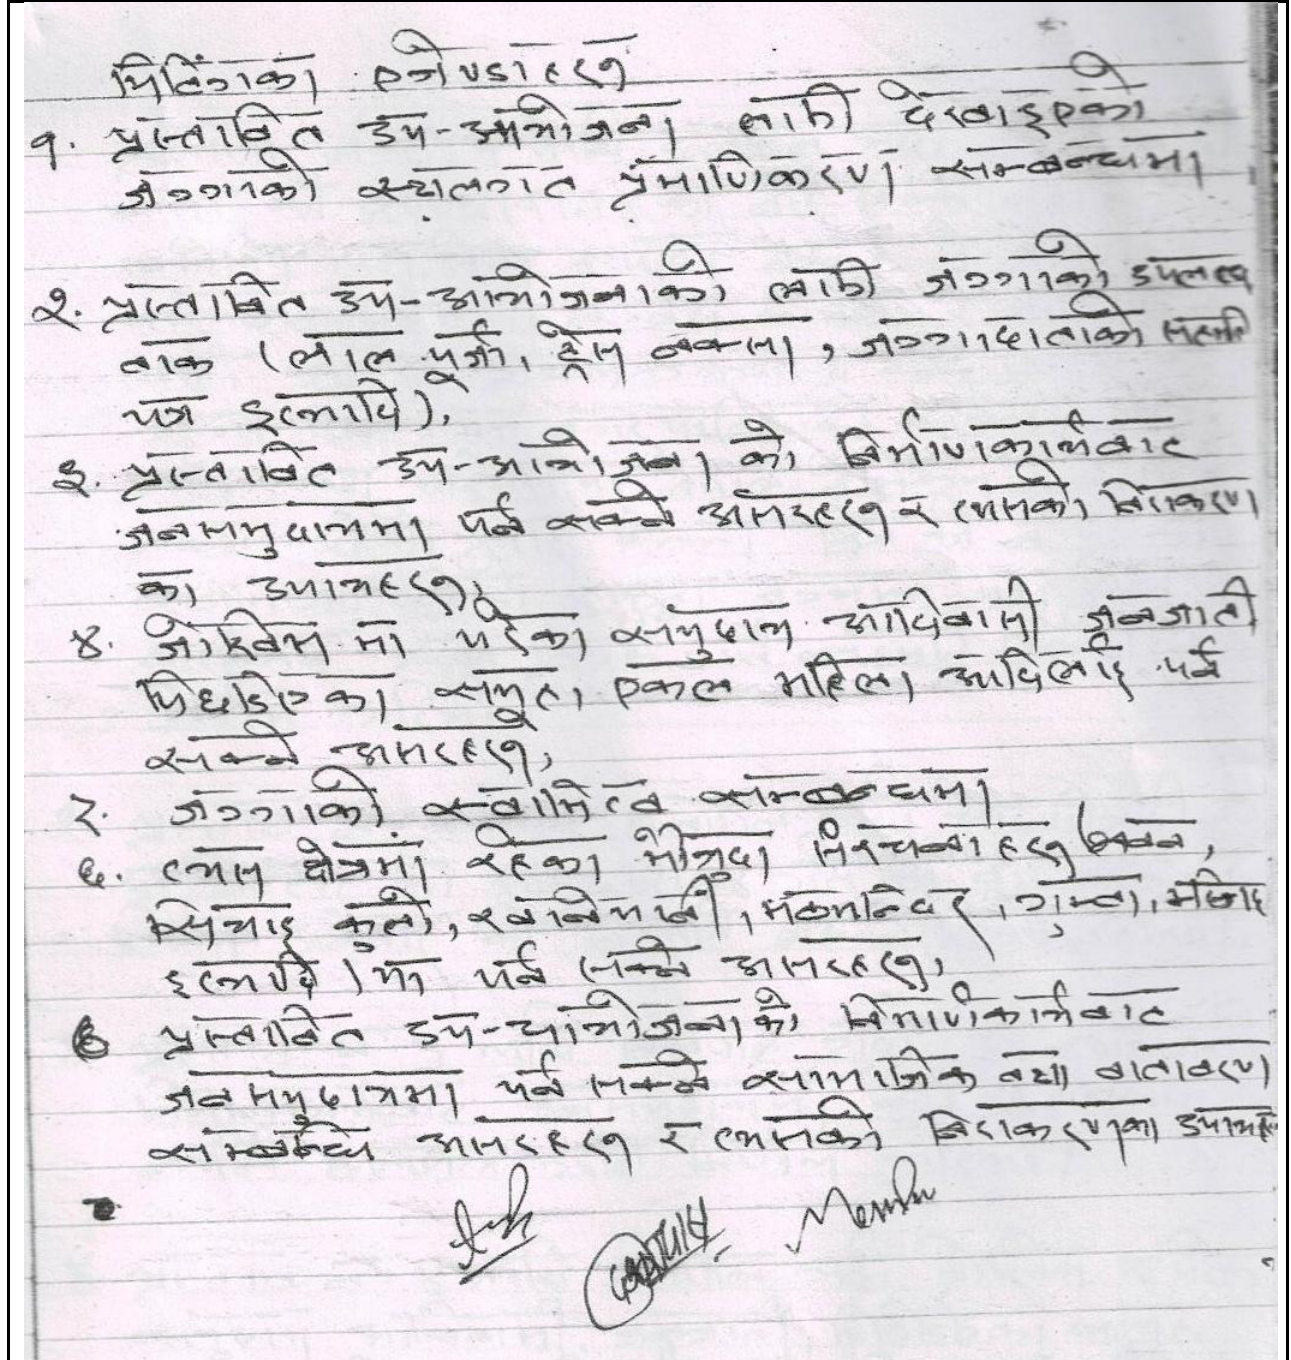 मिटिंगका एजेण्डाहरु
१. प्रस्तावित उप-आयोजना लागी देखाइएको
जग्गाको स्थलगत प्रमाणिकरण सम्बन्धमा
२. प्रस्तावित उप-आयोजनाको लागी जग्गाको उपलब्ध
ताक (लाल पूर्जा, ट्रेस नक्सा, जग्गादाताको सहमति
पत्र इत्यादि),
३. प्रस्तावित उप-आयोजना को निर्माणकार्यबाट
जनसमुदायमा पर्न सक्ने असरहरु र त्यसको निराकरण
का उपायहरु,
४. जोखिम मा परेका समुदाय आदिवासी जनजाती
पिछडिएका समूह, एकल महिला आदिलाई पर्न
सक्ने असरहरु,
५. जग्गाको स्वामित्व सम्बन्धमा
६. त्यस क्षेत्रमा रहेका मौजुदा संरचनाहरु (भवन,
सिचाइ कुलो, खानेपानी, मठमन्दिर, गुम्बा, मस्जिद
इत्यादि) मा पर्न सक्ने असरहरु,
प्रस्तावित उप-आयोजनाको निर्माणकार्यबाट
जनसमुदायमा पर्न सक्ने सामाजिक तथा वातावरण
सम्बन्धि असरहरु र त्यसको निराकरणका उपायहरु